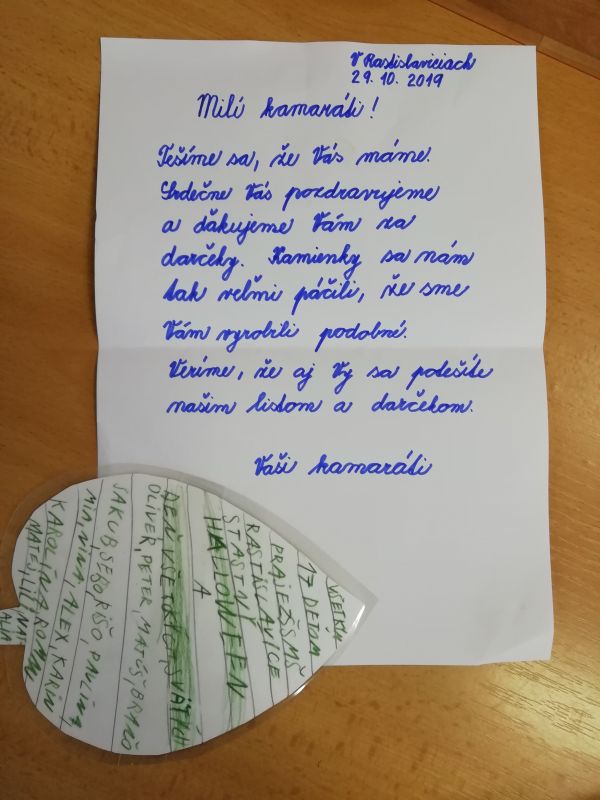 V Rastislaviciach
29. 10. 2019
Milí kamaráti!
Tešíme sa, že Vás máme.
Srdečne Vás pozdravujeme
a ďakujeme Vám za
darčeky. Kamienky sa nám
tak veľmi páčili, že sme
Vám vyrobili podobné.
Veríme, že aj Vy sa potešíte
našim listom a darčekom.
Vaši kamaráti
17 DEŤOM
RASTISLAVICE
STASTNÝ
HALLOWEEN
A
DEŇ
OLIVER, PETER, MATÚŠ, BRAŇO
JAKUB, SEBO, RIŠO, PAVLÍNA
MIA, NINA, ALEX, KARIN
KAROLÍNA, ROMAN
MATEJ,